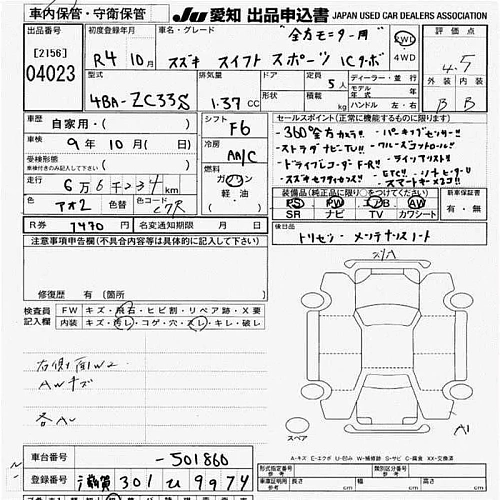 車内保管・守衛保管
JU 愛知 出品申込書 JAPAN USED CAR DEALERS ASSOCIATION
出品番号
[2156]
04023
初度登録年月
R4 10月
車名・グレード
"全方モニター用"
スズキ スイフト スポーツ ICターボ
2WD
4WD
評価点
4.5
型式
4BA-ZC33S
排気量
1.37 CC
ドア
形状
定員 5人
積載 kg
ディーラー・並行
モデル年式 年
ハンドル 左・右
外装 内装
B B
車歴 自家用・( )
車検 9年10月( )日
受検形態
車検付きのみ記入して下さい
走行 6万6千234km
色 アオ2 色替
色コード
シフト F6
冷房 AA/C
燃料
ガソリン
軽油
( )
セールスポイント(正常に機能するものに限ります)
・360全方カメラ!! ・パーキングセンサー!!
・ストラダナビTV!! ・クルーズコントロール!!
・ドライブレコーダーF・R!!
・スズキセフティサポート!!
・スマートキー×2コ!!
装備品(純正品に限り○をつけてください)
PS PW エアB AW
SR ナビ TV カワシート
新車保証書
有・無
R券 7470円 名変通知期限 月 日
後日品
トリセツ・メンテナンスノート
注意事項申告欄(不具合内容等は具体的に記入して下さい)
修復歴 有 〔箇所
検査員記入欄
FW キズ・飛石・ヒビ割・リペア跡・X要
内装 キズ・汚レ・コゲ・穴・スレ・キレ・破レ
右側面W2
AWキズ
各AU
スペア
A1
A-キズ E-エクボ U-凹み W-補修跡 S-サビ C-腐食 XX-交換済
車台番号 -501860
登録番号 滋賀 301 ひ 9974
形式指定番号
参考
類別区分番号
参考
車体証明用
参考
長さ cm 幅 cm 高さ cm